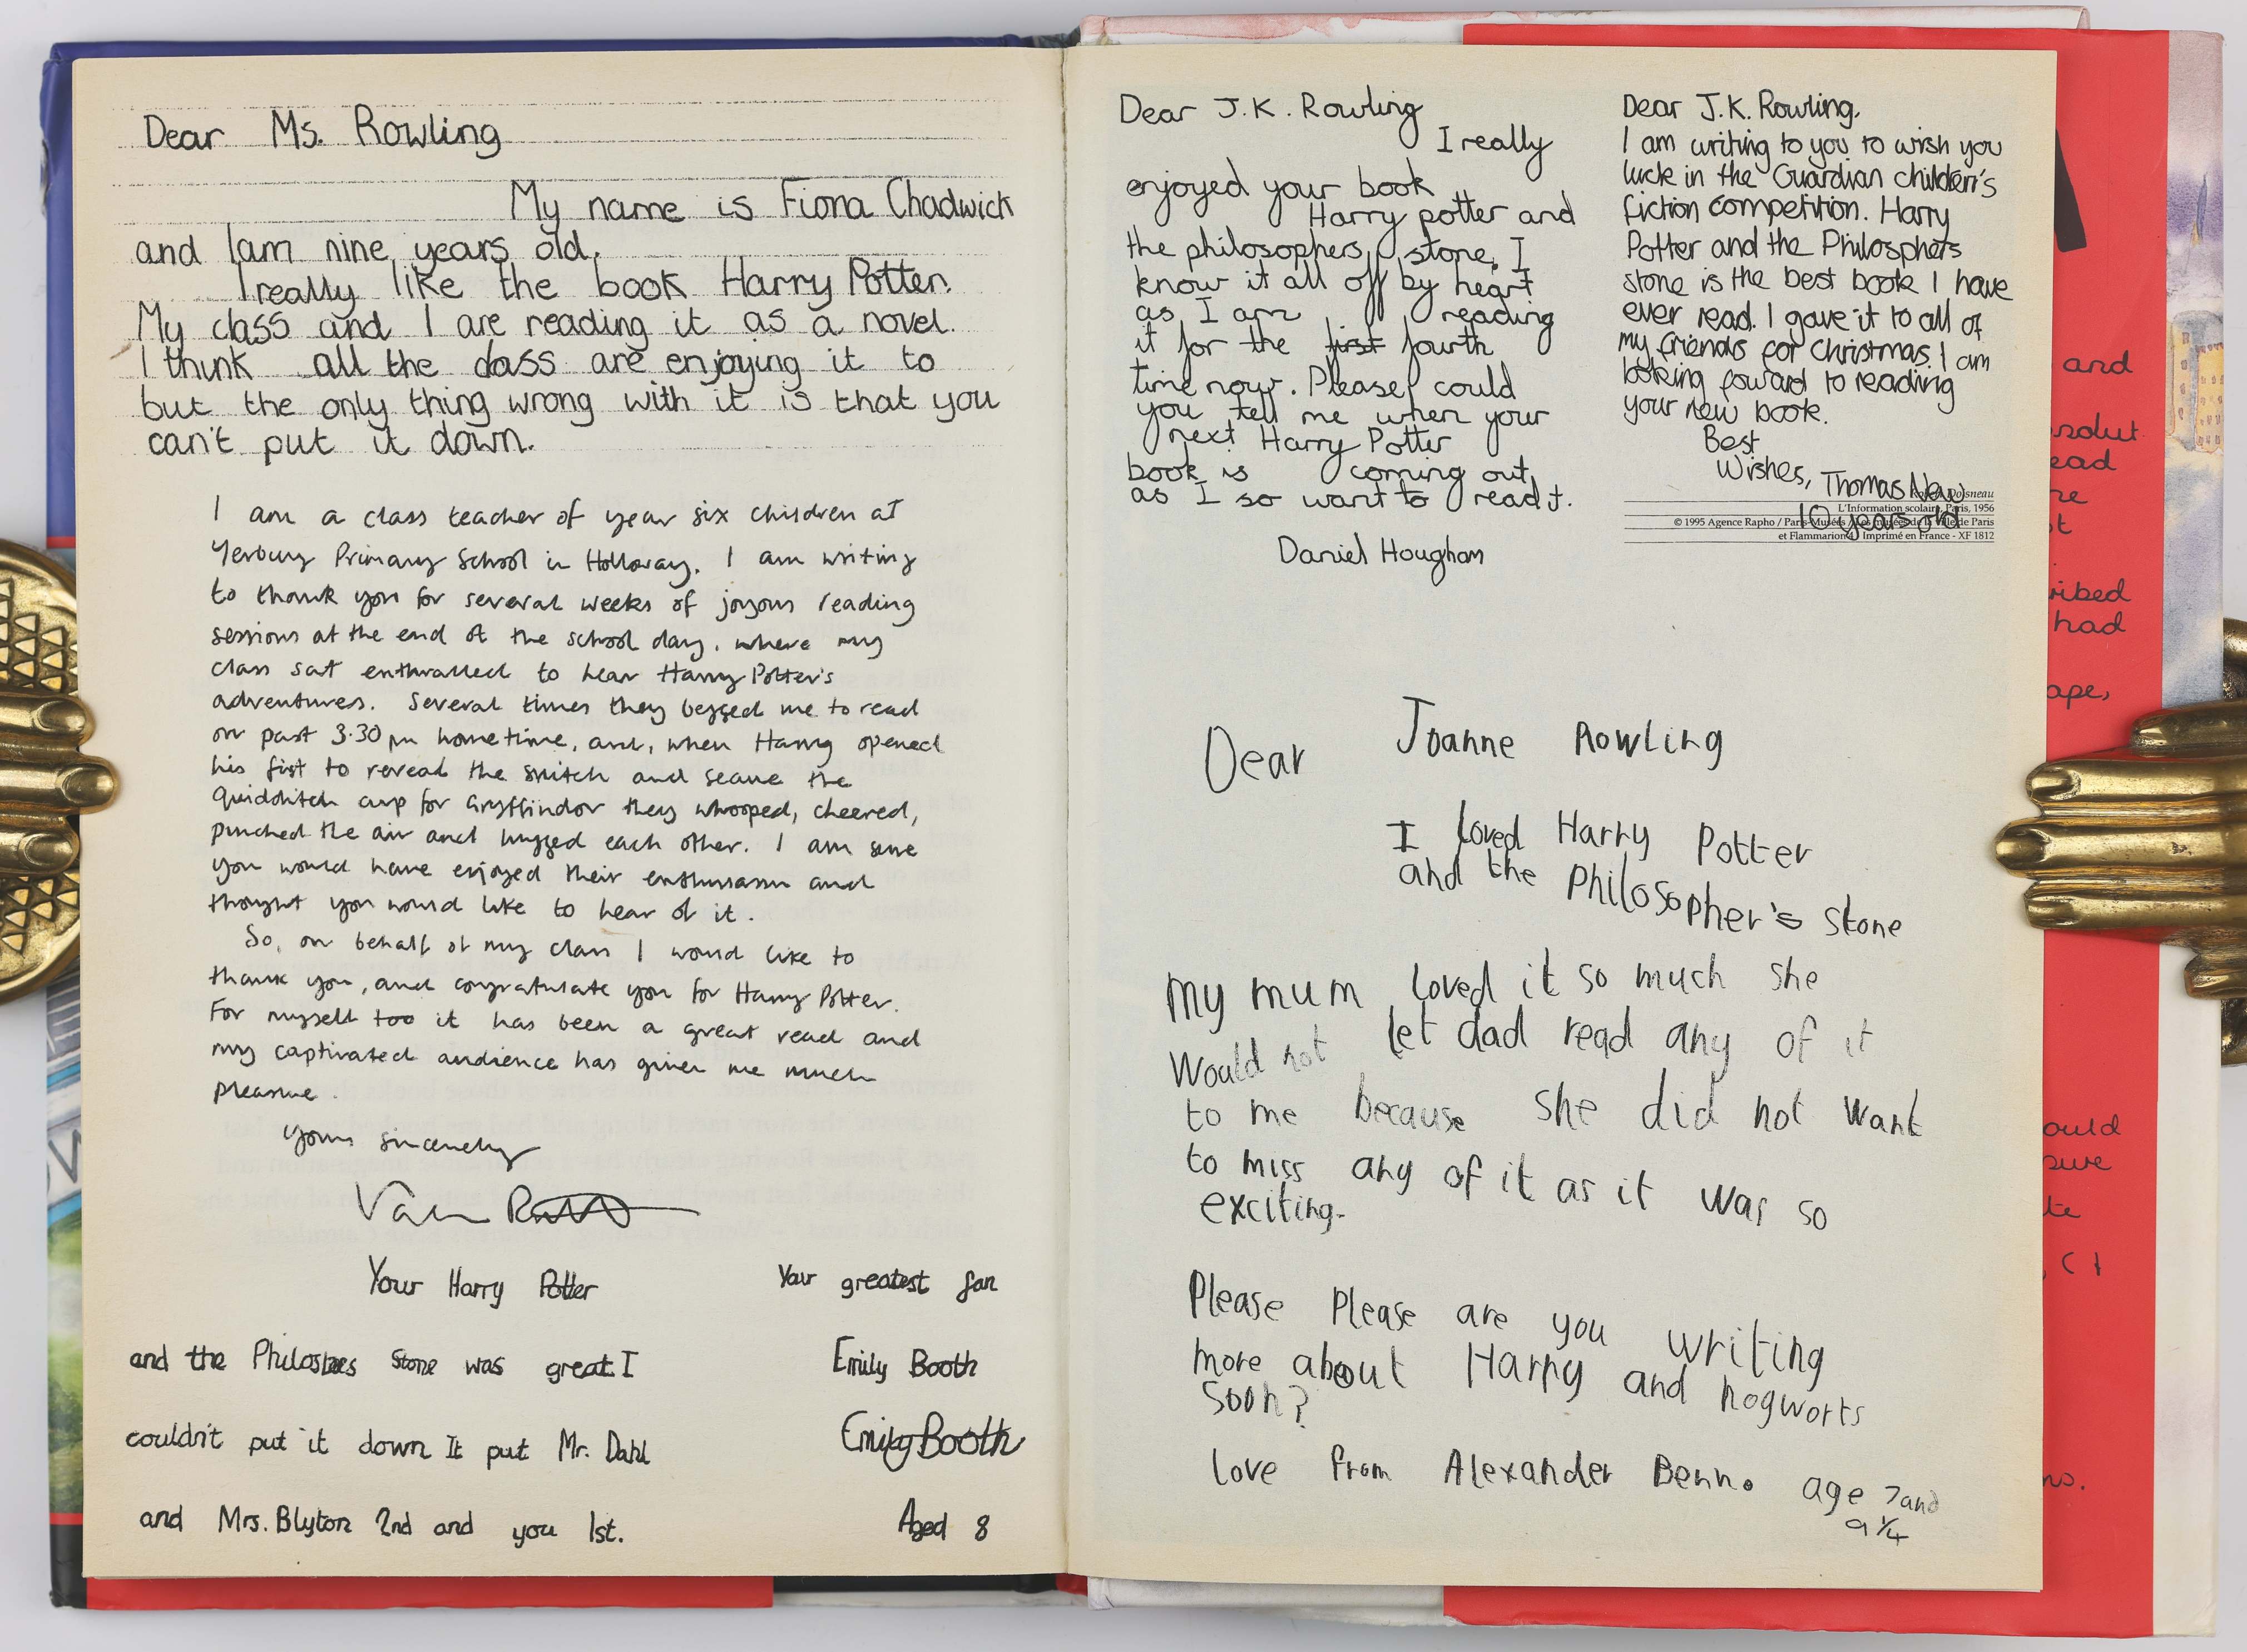 Dear Ms. Rowling
My name is Fiona Chadwick
and I am nine years old.
I really like the book Harry Potter.
My class and I are reading it as a novel.
I think all the class are enjoying it to
but the only thing wrong with it is that you
can't put it down.
I am a class teacher of year six children at
Yerbury Primary School in Holloway. I am writing
to thank you for several weeks of joyous reading
sessions at the end of the school day, where my
class sat enthralled to hear Harry Potter's
adventures. Several times they begged me to read
on past 3.30 pm hometime, and, when Harry opened
his fist to reveal the snitch and secure the
Quidditch cup for Gryffindor they whooped, cheered,
punched the air and hugged each other. I am sure
you would have enjoyed their enthusiasm and
thought you would like to hear of it.
So, on behalf of my class I would like to
thank you, and congratulate you for Harry Potter.
For myself too it has been a great read and
my captivated audience has given me much
pleasure.
Yours sincerely
Your Harry Potter
and the Philosbes Stone was great I
couldn't put it down It put Mr. Dahl
and Mrs. Blyton 2nd and you 1st.
Your greatest fan
Emily Booth
Emily Booth
Aged 8
Dear J.K. Rowling
I really
enjoyed your book
Harry potter and
the philosophers stone, I
know it all off by heart
as I am reading
it for the first fourth
time now. Please could
you tell me when your
next Harry Potter
book is coming out,
as I so want to read it.
Daniel Hougham
Dear J.K. Rowling.
I am writing to you to wish you
luck in the Guardian children's
fiction competition. Harry
Potter and the Philosphers
stone is the best book I have
ever read. I gave it to all of
my friends for Christmas. I am
looking foward to reading
your new book.
Best
Wishes, Thomas New
10 years old
Doisneau
L'Information scolaire, Paris, 1956
© 1995 Agence Rapho / Paris-Musées / Les musées de la Ville de Paris
et Flammarion 4 Imprimé en France - XF 1812
Dear Joanne Rowling
I loved Harry Potter
and the Philosopher's stone
My mum loved it so much she
Would not let dad read any of it
to me because she did not want
to miss any of it as it was so
exciting.
Please Please are you writing
more about Harry and hogworts
soon?
Love from Alexander Benn. age 7 and
a 1/4
and
had
ould